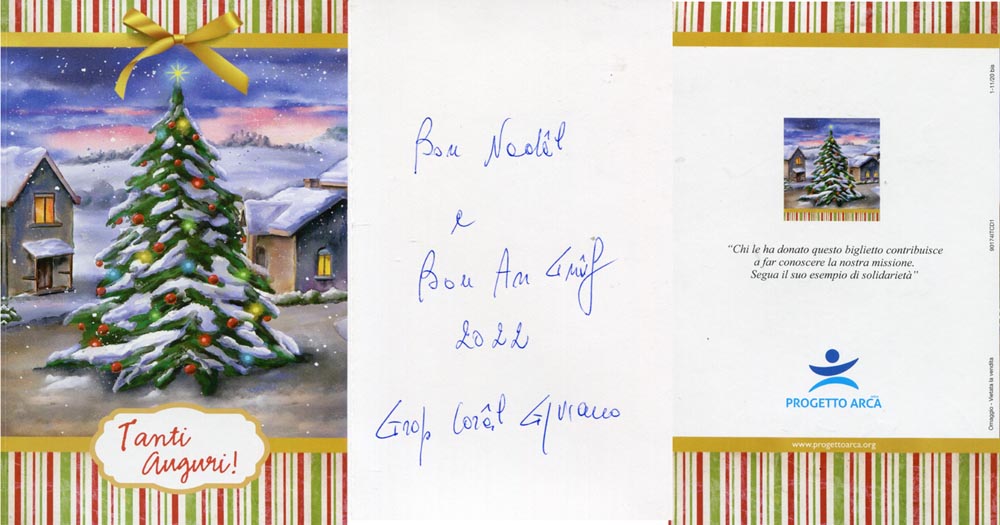 Tanti
Auguri!
Bon Nadâl
e
Bon An Gnûf
2022
Grop Corâl Gjviano
1-11/20 bis
90174ITCD1
Omaggio - Vietata la vendita
“Chi le ha donato questo biglietto contribuisce
a far conoscere la nostra missione.
Segua il suo esempio di solidarietà”
PROGETTO ARCA
www.progettoarca.org